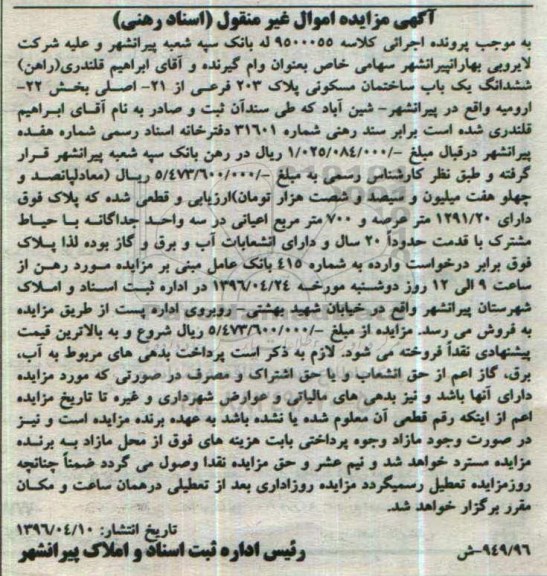 آگهی مزایده اموال غیر منقول (اسناد رهنی)
به موجب پرونده اجرائی کلاسه ۹۵۰۰۰۵۵ له بانک سپه شعبه پیرانشهر و علیه شرکت
لایروبی بهارانپیرانشهر سهامی خاص بعنوان وام گیرنده و آقای ابراهیم قلندری(راهن)
ششدانگ یک باب ساختمان مسکونی پلاک ۲۰۳ فرعی از ۲۱- اصلی بخش ۲۲-
ارومیه واقع در پیرانشهر- شین آباد که طی سندآن ثبت و صادر به نام آقای ابراهیم
قلندری شده است برابر سند رهنی شماره ۳۱۶۰۱ دفترخانه اسناد رسمی شماره هفده
پیرانشهر درقبال مبلغ -/۱/۰۲۵/۰۸۴/۰۰۰ ریال در رهن بانک سپه شعبه پیرانشهر قرار
گرفته و طبق نظر کارشناس رسمی به مبلغ -/۵/۴۷۳/۶۰۰/۰۰۰ ریال (معادلپانصد و
چهلو هفت میلیون و سیصد و شصت هزار تومان)ارزیابی و قطعی شده که پلاک فوق
دارای ۱۲۹۱/۲۰ متر عرصه و ۷۰۰ متر مربع اعیانی در سه واحد جداگانه با حیاط
مشترک با قدمت حدوداً ۲۰ سال و دارای انشعابات آب و برق و گاز بوده لذا پلاک
فوق برابر درخواست وارده به شماره ۴۱۵ بانک عامل مبنی بر مزایده مورد رهن از
ساعت ۹ الی ۱۲ روز دوشنبه مورخه ۱۳۹۶/۰۴/۲۴ در اداره ثبت اسناد و املاک
شهرستان پیرانشهر واقع در خیابان شهید بهشتی - روبروی اداره پست از طریق مزایده
به فروش می رسد. مزایده از مبلغ -/۵/۴۷۳/۶۰۰/۰۰۰ ریال شروع و به بالاترین قیمت
پیشنهادی نقداً فروخته می شود. لازم به ذکر است پرداخت بدهی های مربوط به آب،
برق، گاز اعم از حق انشعاب و یا حق اشتراک و مصرف در صورتی که مورد مزایده
دارای آنها باشد و نیز بدهی های مالیاتی و عوارض شهرداری و غیره تا تاریخ مزایده
اعم از اینکه رقم قطعی آن معلوم شده یا نشده باشد به عهده برنده مزایده است و نیز
در صورت وجود مازاد وجوه پرداختی بابت هزینه های فوق از محل مازاد به برنده
مزایده مسترد خواهد شد و نیم عشر و حق مزایده نقدا وصول می گردد ضمناً چنانچه
روزمزایده تعطیل رسمیگردد مزایده روزاداری بعد از تعطیلی درهمان ساعت و مکان
مقرر برگزار خواهد شد.
تاریخ انتشار: ۱۳۹۶/۰۴/۱۰
رئیس اداره ثبت اسناد و املاک پیرانشهر
۹۴۹/۹۶-ش